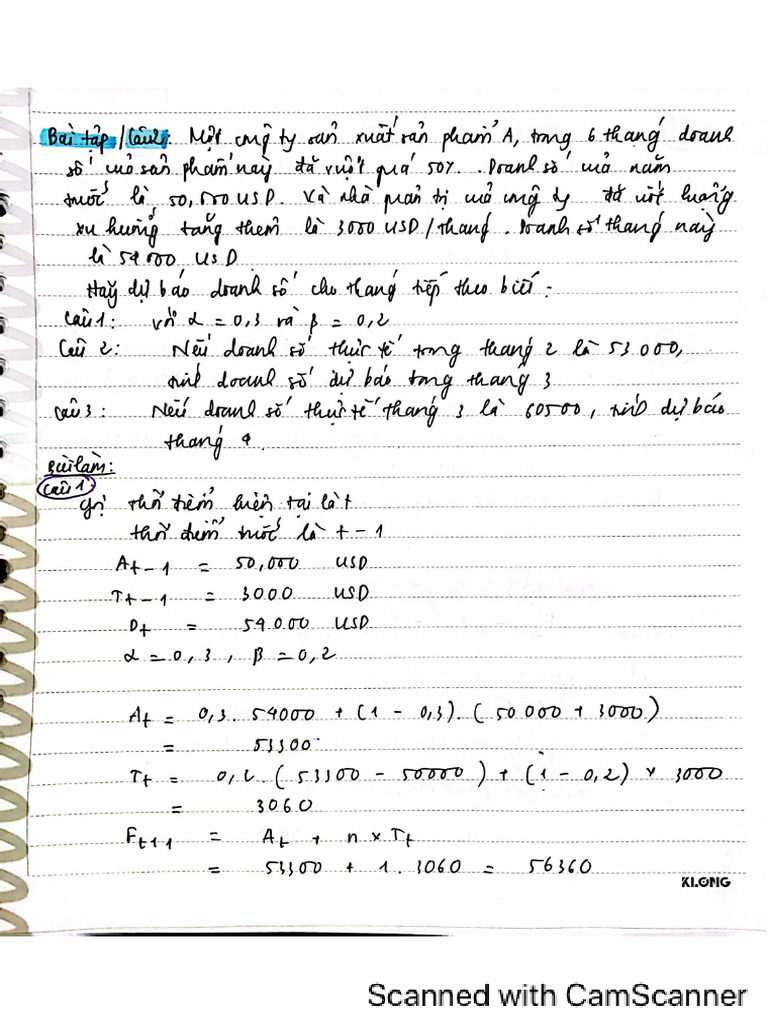 Bài tập / Câu 2: Một công ty sản xuất sản phẩm A, trong 6 tháng doanh
số của sản phẩm này đã vượt quá 50%. Doanh số của năm
trước là 50,000 USD. Và nhà quản trị của công ty đã ước lượng
xu hướng tăng thêm là 3000 USD / tháng. Doanh số tháng này
là 54000 USD.
Hãy dự báo doanh số cho tháng tiếp theo biết:
Câu 1: với α = 0,3 và β = 0,2
Câu 2: Nếu doanh số thực tế trong tháng 2 là 53000,
tính doanh số dự báo trong tháng 3
Câu 3: Nếu doanh số thực tế tháng 3 là 60500, tính dự báo
tháng 4.
Bài làm:
Câu 1:
Gọi thời điểm hiện tại là t
thời điểm trước là t - 1
At-1 = 50,000 USD
Tt-1 = 3000 USD
Dt = 54000 USD
α = 0,3, β = 0,2
At = 0,3. 54000 + (1 - 0,3). (50000 + 3000)
= 53300
Tt = 0,2. (53300 - 50000) + (1 - 0,2) × 3000
= 3060
Ft+1 = At + n × Tt
= 53300 + 1. 3060 = 56360
KLONG
Scanned with CamScanner